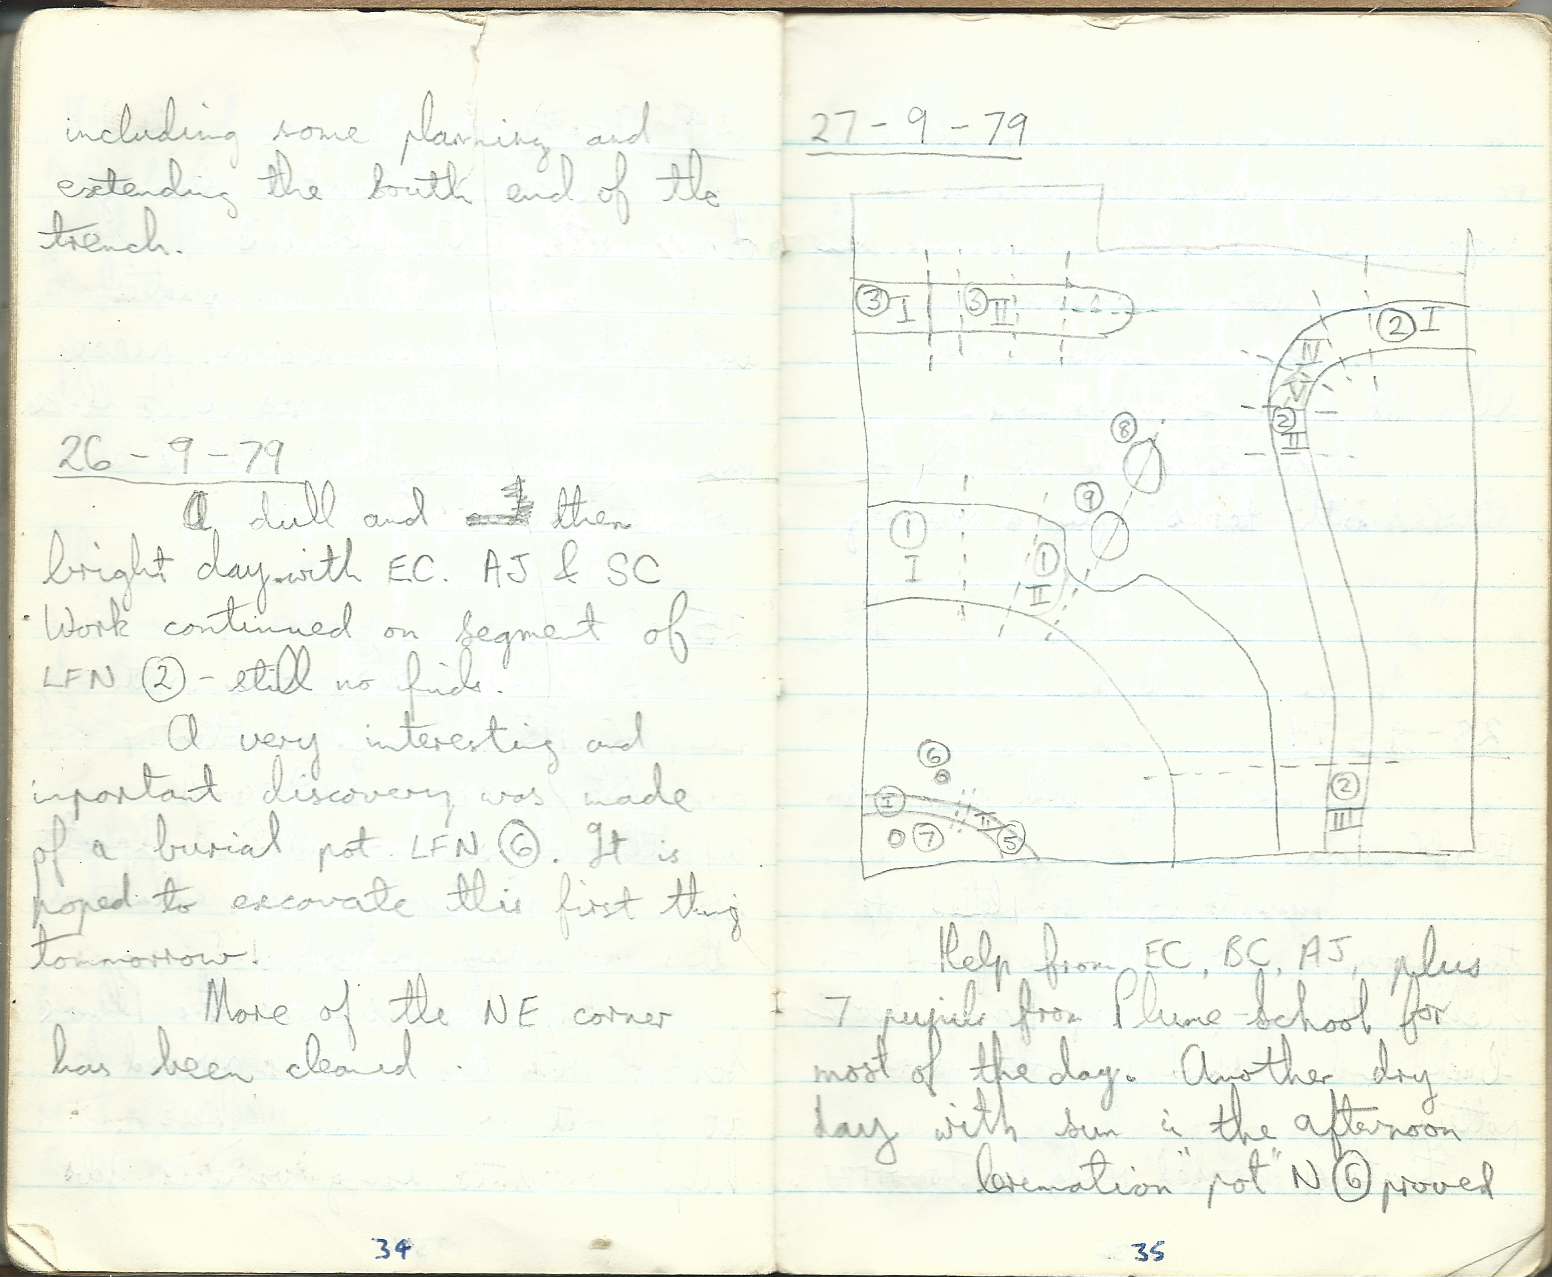 including some planning and
extending the South end of the
trench.
26-9-79
A dull and then
bright day with EC. AJ & SC
Work continued on segment of
LFN ② - still no finds.
A very interesting and
important discovery was made
of a burial pot LFN ⑥. It is
hoped to excavate this first thing
tommorrow!
More of the NE corner
has been cleaned.
34
27-9-79
③ I
③ II
② I
IV
V
②
II
⑧
⑨
①
I
①
II
⑥
I
II
⑤
⑦
②
III
Help from EC, BC, AJ, plus
7 pupils from Plume School for
most of the day. Another dry
day with sun in the afternoon
Cremation "pot" N ⑥ proved
35